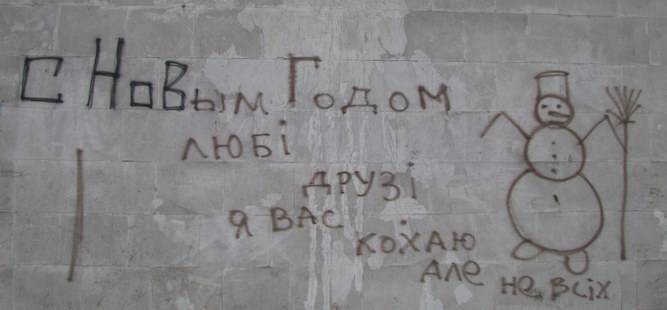 С Новым Годом
любі
друзі
я вас
кохаю
але не всіх